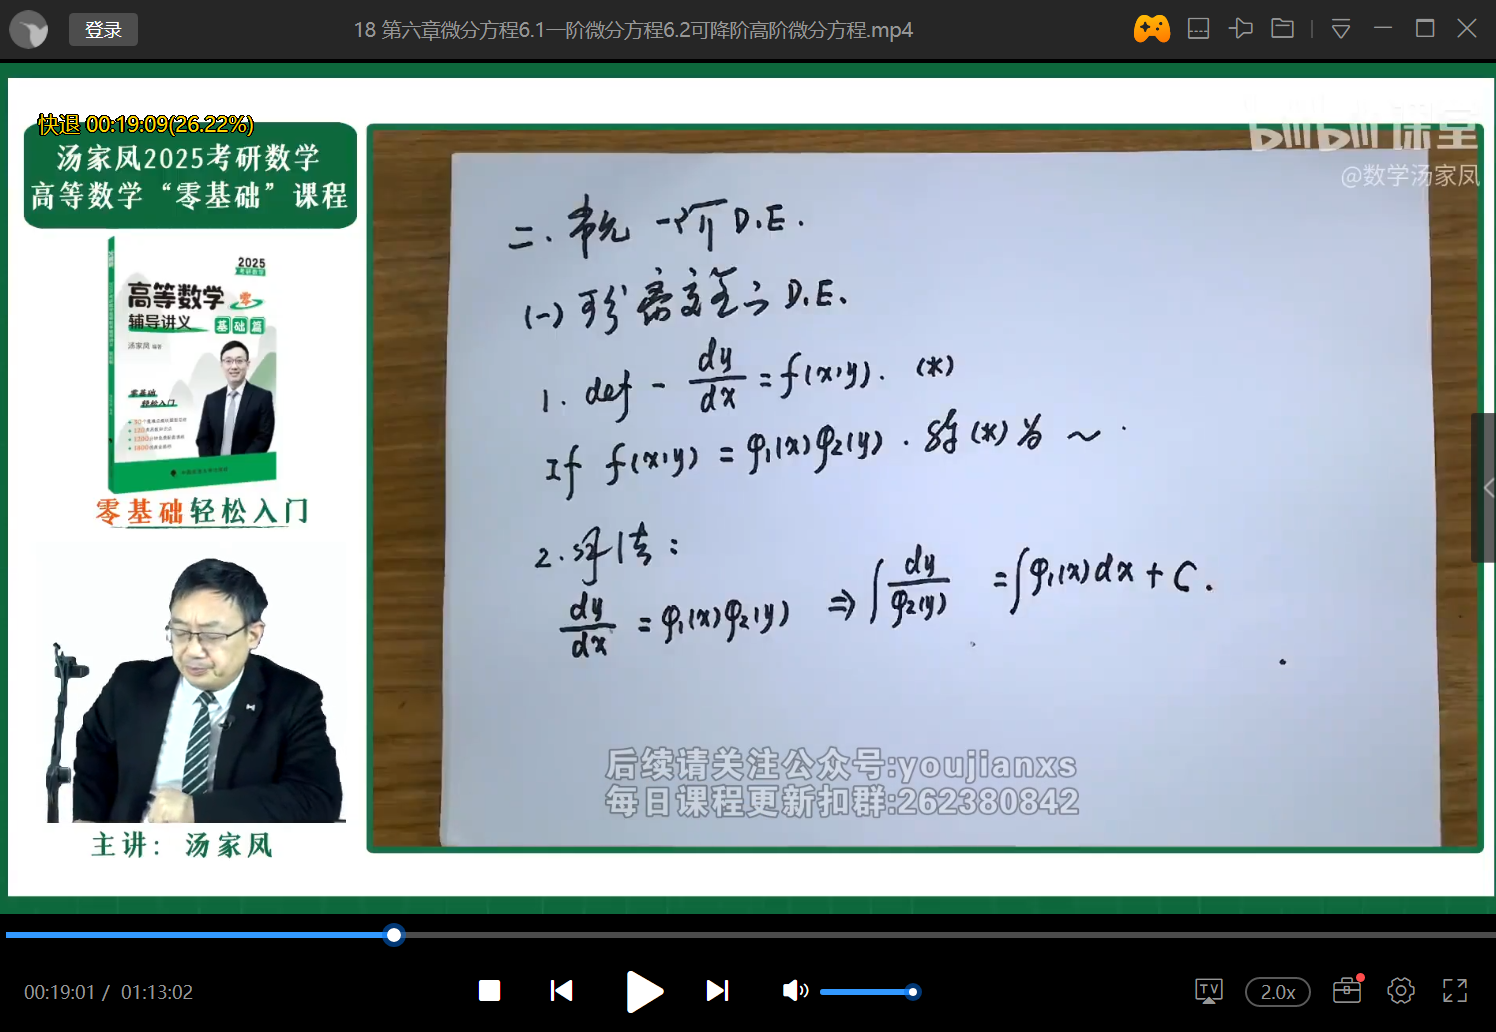 登录
18 第六章微分方程6.1一阶微分方程6.2可降阶高阶微分方程.mp4
快退 00:19:09(26.22%)
汤家凤2025考研数学
高等数学“零基础”课程
bilibili 课堂
@数学汤家凤
2025
考研数学
高等数学 零
辅导讲义 基础篇
汤家凤 编著
零基础
轻松入门
零基础轻松入门
主讲：汤家凤
二. 常见一阶 D.E.
(一) 可分离变量的 D.E.
1. def - dy/dx = f(x,y). (*)
If f(x,y) = φ₁(x)φ₂(y). 称(*)为 ~.
2. 解法:
dy/dx = φ₁(x)φ₂(y) ⇒ ∫dy/φ₂(y) = ∫φ₁(x)dx + C.
后续请关注公众号:youjianxs
每日课程更新扣群:262380842
00:19:01 / 01:13:02
TV
2.0x